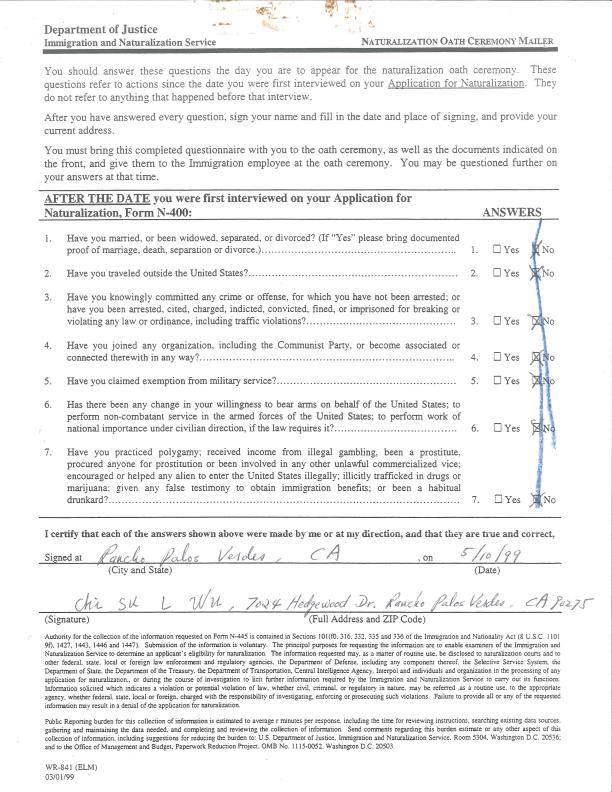 Department of Justice
Immigration and Naturalization Service
NATURALIZATION OATH CEREMONY MAILER
You should answer these questions the day you are to appear for the naturalization oath ceremony. These
questions refer to actions since the date you were first interviewed on your Application for Naturalization. They
do not refer to anything that happened before that interview.
After you have answered every question, sign your name and fill in the date and place of signing, and provide your
current address.
You must bring this completed questionnaire with you to the oath ceremony, as well as the documents indicated on
the front, and give them to the Immigration employee at the oath ceremony. You may be questioned further on
your answers at that time.
AFTER THE DATE you were first interviewed on your Application for
Naturalization, Form N-400: ANSWERS
1. Have you married, or been widowed, separated, or divorced? (If "Yes" please bring documented
proof of marriage, death, separation or divorce.)... 1. ☐ Yes ☒ No
2. Have you traveled outside the United States?... 2. ☐ Yes ☒ No
3. Have you knowingly committed any crime or offense, for which you have not been arrested; or
have you been arrested, cited, charged, indicted, convicted, fined, or imprisoned for breaking or
violating any law or ordinance, including traffic violations?... 3. ☐ Yes ☒ No
4. Have you joined any organization, including the Communist Party, or become associated or
connected therewith in any way?... 4. ☐ Yes ☒ No
5. Have you claimed exemption from military service?... 5. ☐ Yes ☒ No
6. Has there been any change in your willingness to bear arms on behalf of the United States; to
perform non-combatant service in the armed forces of the United States; to perform work of
national importance under civilian direction, if the law requires it?... 6. ☐ Yes ☒ No
7. Have you practiced polygamy; received income from illegal gambling, been a prostitute,
procured anyone for prostitution or been involved in any other unlawful commercialized vice;
encouraged or helped any alien to enter the United States illegally; illicitly trafficked in drugs or
marijuana; given any false testimony to obtain immigration benefits; or been a habitual
drunkard?... 7. ☐ Yes ☒ No
I certify that each of the answers shown above were made by me or at my direction, and that they are true and correct,
Signed at Rancho Palos Verdes, CA , on 5/10/99
(City and State) (Date)
Chi SU L WU, 7024 Hedgewood Dr. Rancho Palos Verdes. CA 90275
(Signature) (Full Address and ZIP Code)
Authority for the collection of the information requested on Form N-445 is contained in Sections 101(f), 316, 332, 335 and 336 of the Immigration and Nationality Act (8 U.S.C. 1101
9f), 1427, 1443, 1446 and 1447). Submission of the information is voluntary. The principal purposes for requesting the information are to enable examiners of the Immigration and
Naturalization Service to determine an applicant's eligibility for naturalization. The information requested may, as a matter of routine use, be disclosed to naturalization courts and to
other federal, state, local or foreign law enforcement and regulatory agencies, the Department of Defense, including any component thereof, the Selective Service System, the
Department of State, the Department of the Treasury, the Department of Transportation, Central Intelligence Agency, Interpol and individuals and organizations in the processing of any
application for naturalization, or during the course of investigation to licit further information required by the Immigration and Naturalization Service to carry out its functions.
Information solicited which indicates a violation or potential violation of law, whether civil, criminal, or regulatory in nature, may be referred .as a routine use, to the appropriate
agency, whether federal, state, local or foreign, charged with the responsibility of investigating, enforcing or prosecuting such violations. Failure to provide all or any of the requested
information may result in a denial of the application for naturalization.
Public Reporting burden for this collection of information is estimated to average r minutes per response, including the time for reviewing instructions, searching existing data sources,
gathering and maintaining the data needed, and completing and reviewing the collection of information. Send comments regarding this burden estimate or any other aspect of this
collection of information, including suggestions for reducing the burden to: U.S. Department of Justice, Immigration and Naturalization Service, Room 5304, Washington D.C. 20536;
and to the Office of Management and Budget, Paperwork Reduction Project, OMB No. 1115-0052, Washington D.C. 20503.
WR-841 (ELM)
03/01/99